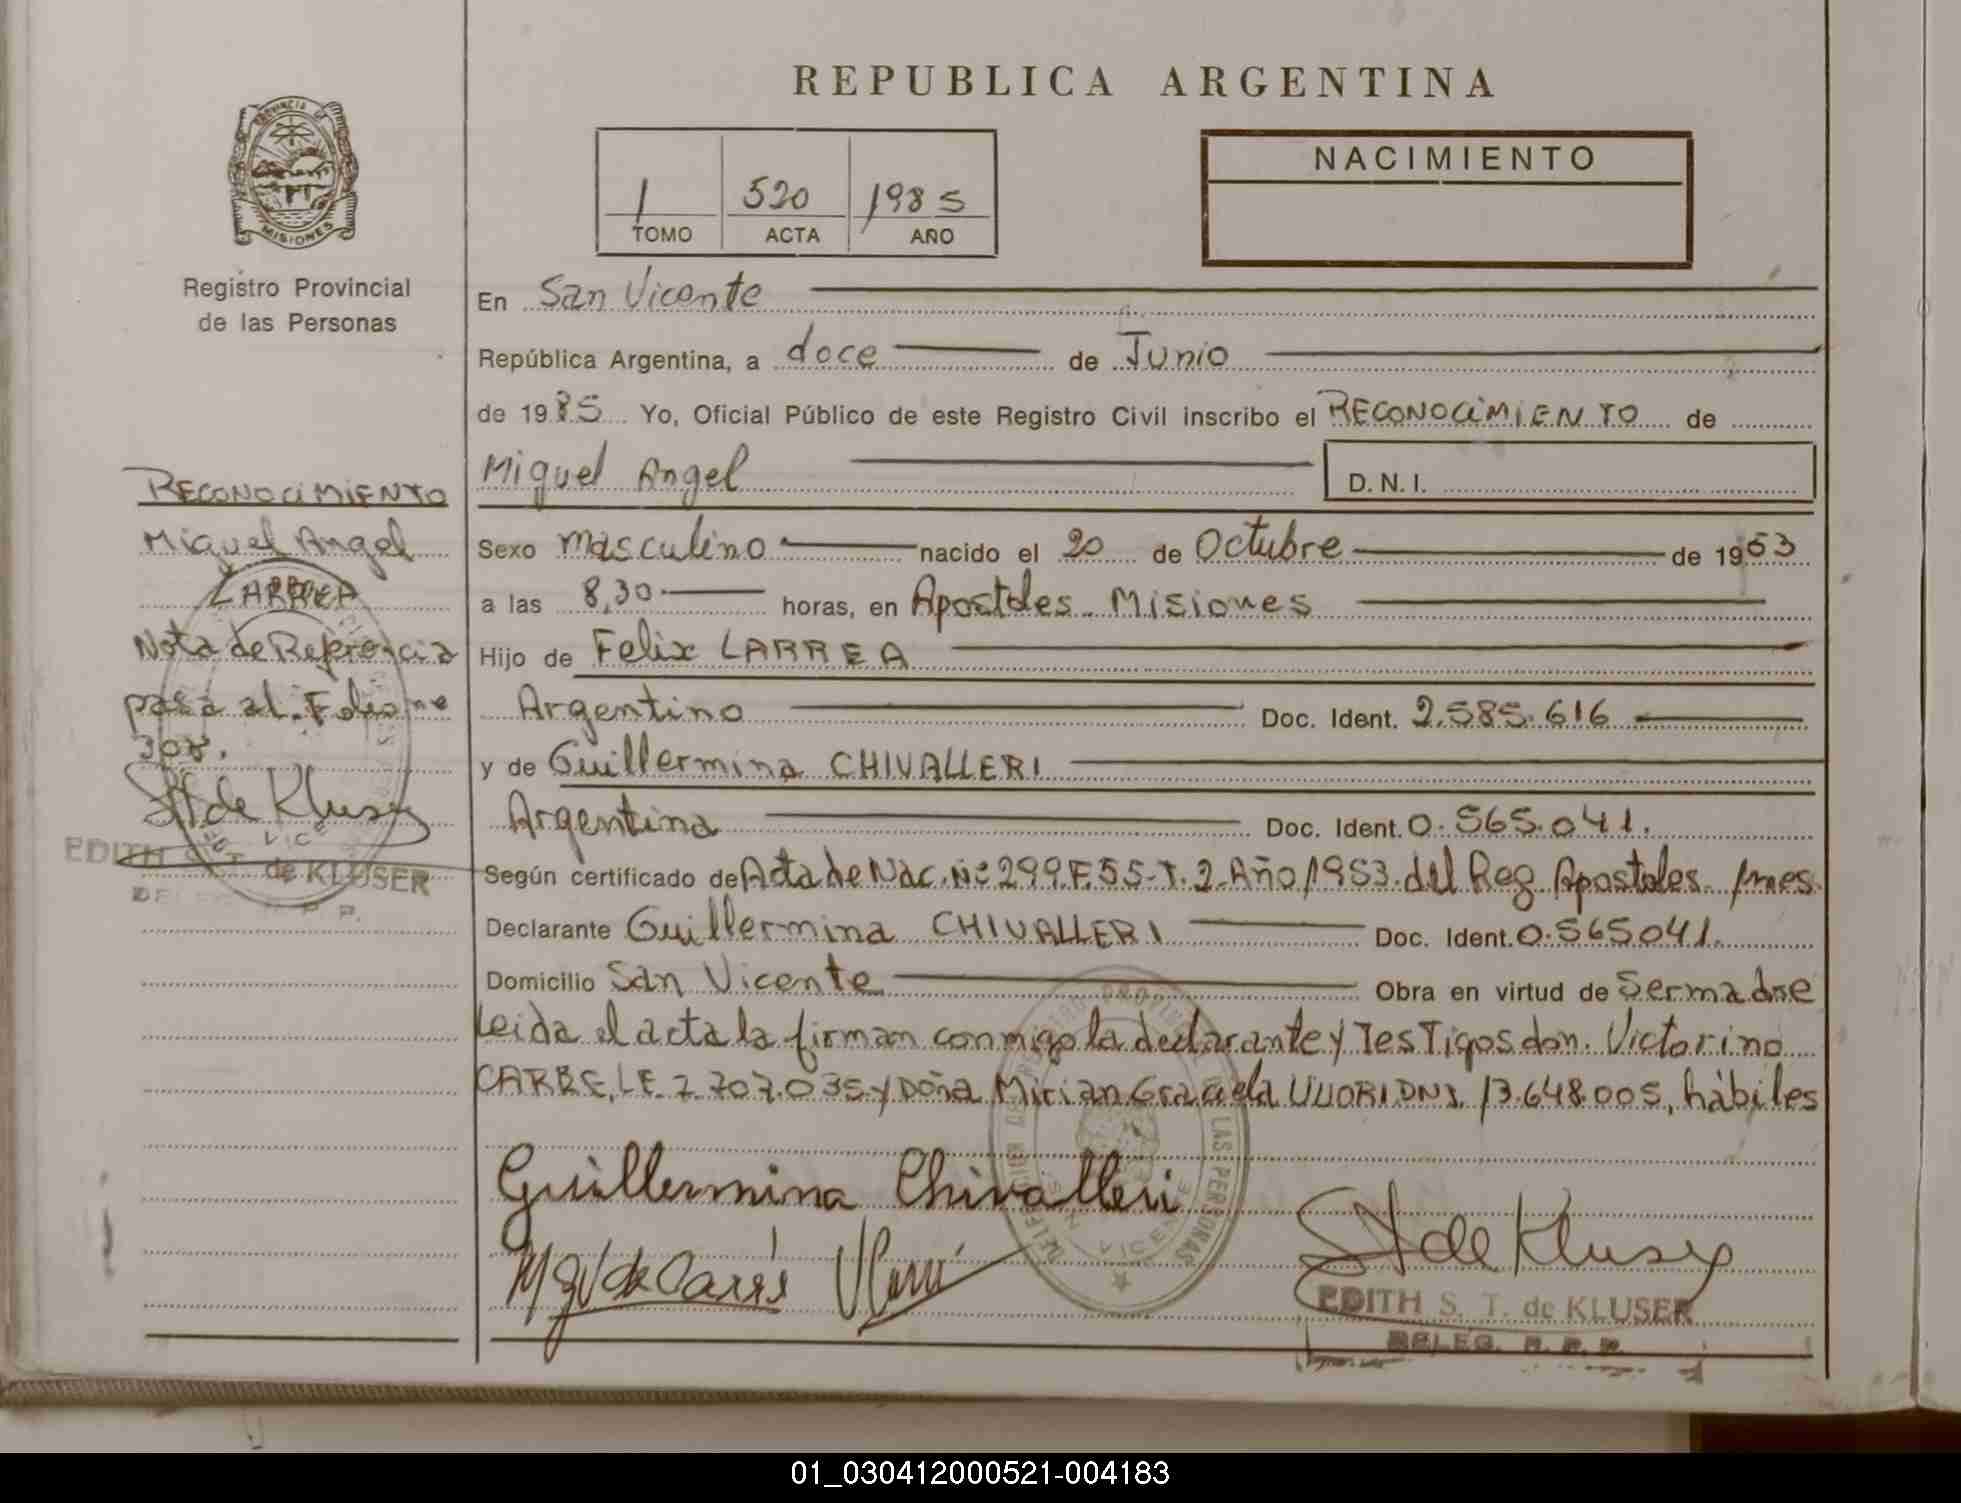 REPUBLICA ARGENTINA
PROVINCIA DE
MISIONES
Registro Provincial
de las Personas
1 520 1985
TOMO ACTA AÑO
NACIMIENTO
En San Vicente
República Argentina, a doce de Junio
de 1985 Yo, Oficial Público de este Registro Civil inscribo el RECONOCIMIENTO de
Miguel Angel D.N.I.
Sexo masculino nacido el 20 de Octubre de 1953
a las 8,30 horas, en Apostoles Misiones
Hijo de Felix LARREA
Argentino Doc. Ident. 2.585.616
y de Guillermina CHIVALLERI
Argentina Doc. Ident. 0.565.041.
Según certificado de Acta de Nac. Nº 299.F.55-T.2-Año/1953. del Reg. Apostoles /mes.
Declarante Guillermina CHIVALLERI Doc. Ident. 0.565041.
Domicilio San Vicente Obra en virtud de Ser madre
Leida el acta la firman conmigo la declarante y Testigos don. Victorino
CARRE, LE 7.707.035 y Doña Mirian Graciela DNI. 13.648.005, hábiles
Guillermina Chivalleri
St de Kluser
EDITH S. T. de KLUSER
DELEG. R. P. P.
RECONOCIMIENTO
Miguel Angel
LARREA
Nota de Referencia
pasa al Folio nº
308.
St de Kluser
EDITH S. T. de KLUSER
DELEG. R. P. P.
LAS PERSONAS
SAN VICENTE
01_030412000521-004183